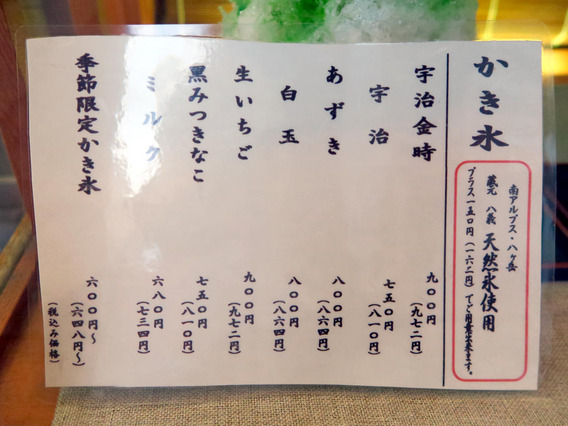 かき氷
南アルプス・八ヶ岳
蔵元 八義 天然氷使用
プラス一五〇円(一六二円)でご用意出来ます。
宇治金時 九〇〇円(九七二円)
宇治 七五〇円(八一〇円)
あずき 八〇〇円(八六四円)
白玉 八〇〇円(八六四円)
生いちご 九〇〇円(九七二円)
黒みつきなこ 七五〇円(八一〇円)
ミルク 六八〇円(七三四円)
季節限定かき氷 六〇〇円～(六四八円～)
(税込み価格)